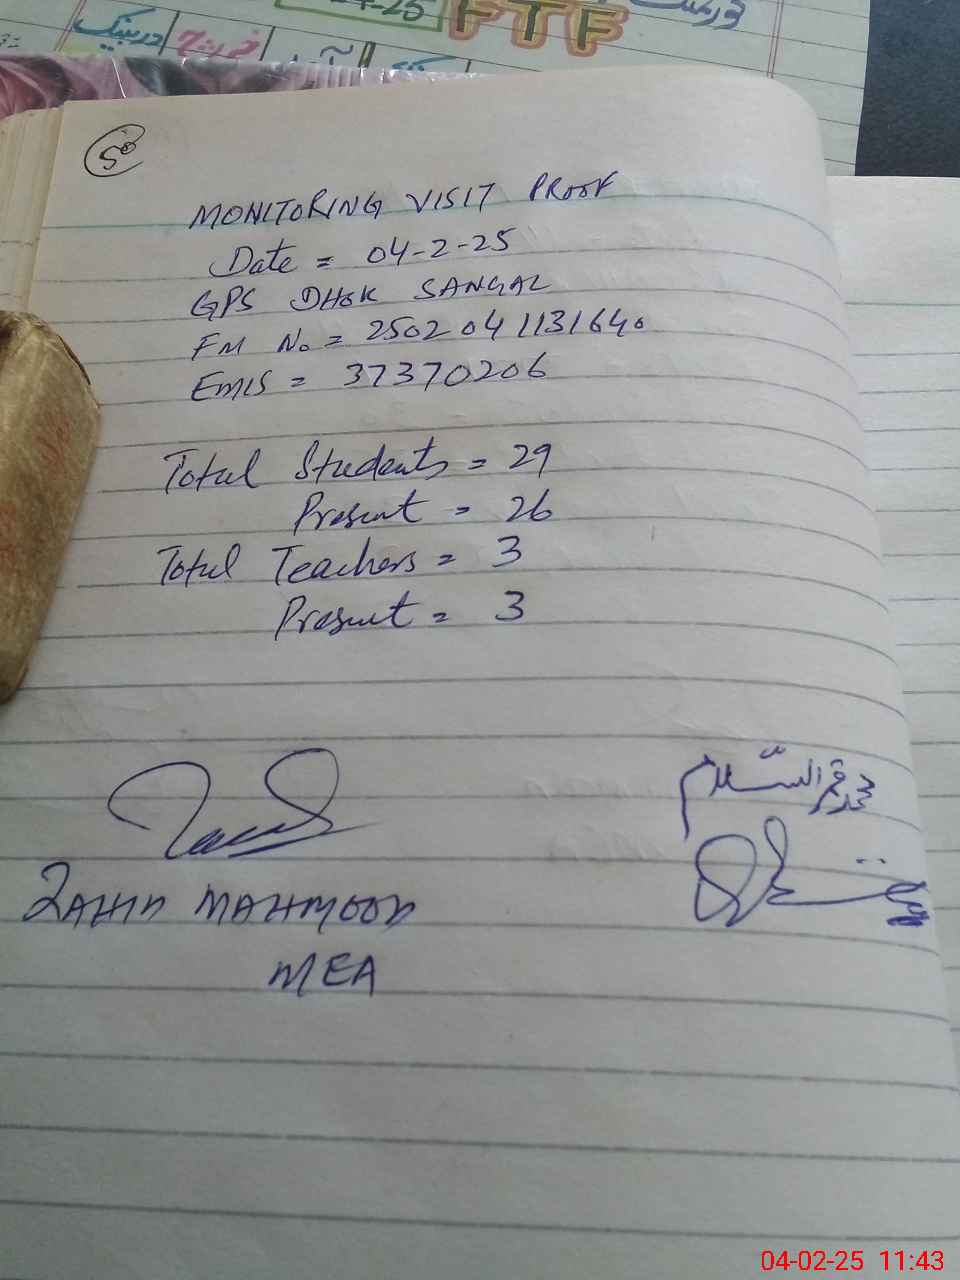 24-25
FTF
50
MONITORING VISIT PROOF
Date = 04-2-25
GPS DHOK SANGAL
FM No = 2502041131640
EMIS = 37370206
Total Students = 29
Present = 26
Total Teachers = 3
Present = 3
محمد قمر السّلام
ZAHID MAHMOOD
MEA
04-02-25 11:43